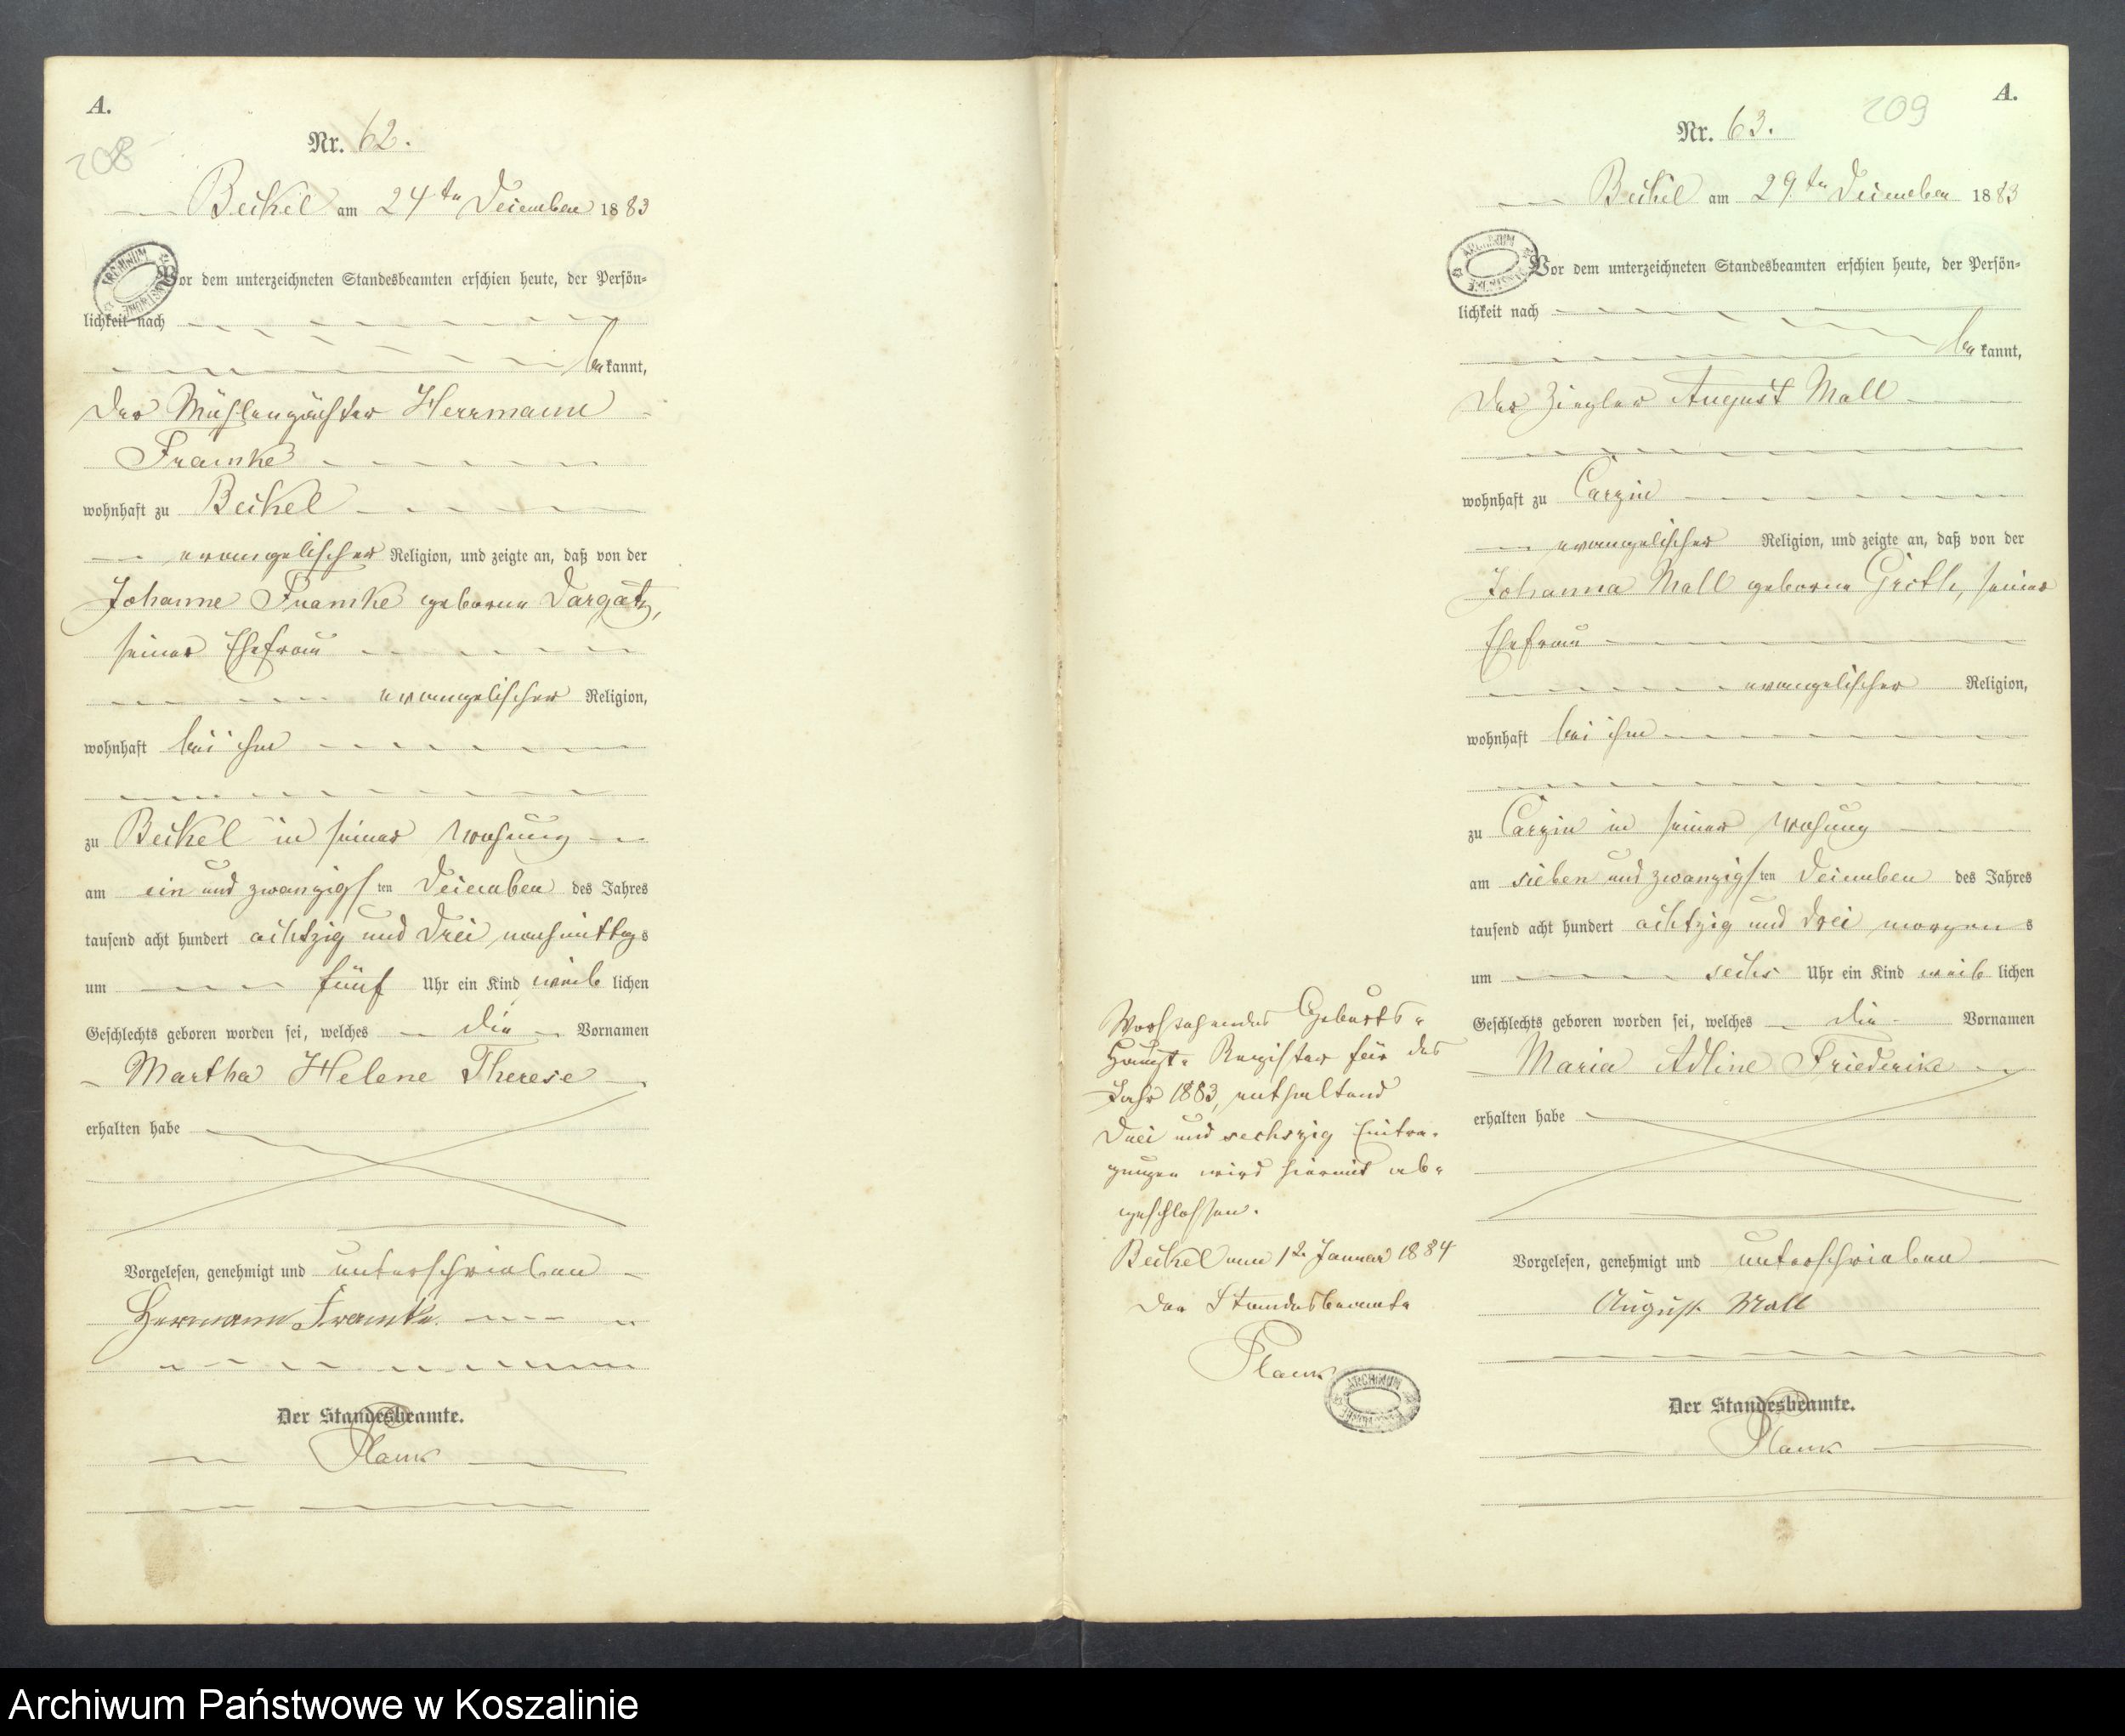 A.
208
Nr. 62.
Beckel am 24ten December 1883
Vor dem unterzeichneten Standesbeamten erschien heute, der Persön-
lichkeit nach
bekannt,
der Mühlenpächter Herrmann
Framke
wohnhaft zu Beckel
evangelischer Religion, und zeigte an, daß von der
Johanne Framke geborne Dargatz,
seiner Ehefrau
evangelischer Religion,
wohnhaft bei ihm
zu Beckel in seiner Wohnung
am ein und zwanzigsten December des Jahres
tausend acht hundert achtzig und drei nachmittags
um fünf Uhr ein Kind weiblichen
Geschlechts geboren worden sei, welches die Vornamen
Martha Helene Therese
erhalten habe
Vorgelesen, genehmigt und unterschrieben
Hermann Framke.
Der Standesbeamte.
Plank
A.
209
Nr. 63.
Beckel am 29ten December 1883
Vor dem unterzeichneten Standesbeamten erschien heute, der Persön-
lichkeit nach
bekannt,
der Ziegler August Mall
wohnhaft zu Carzin
evangelischer Religion, und zeigte an, daß von der
Johanna Mall geborne Groth, seiner
Ehefrau
evangelischer Religion,
wohnhaft bei ihm
zu Carzin in seiner Wohnung
am sieben und zwanzigsten December des Jahres
tausend acht hundert achtzig und drei morgens
um sechs Uhr ein Kind weiblichen
Geschlechts geboren worden sei, welches die Vornamen
Maria Adline Friederike
erhalten habe
Vorgelesen, genehmigt und unterschrieben
August Mall
Der Standesbeamte.
Plank
Vorstehendes Geburts-
Haupt-Register für das
Jahr 1883, enthaltend
drei und sechszig Eintra-
gungen wird hiermit ab-
geschlossen.
Beckel am 12 Januar 1884
Der Standesbeamte
Plank
ARCHIWUM
Archiwum Państwowe w Koszalinie